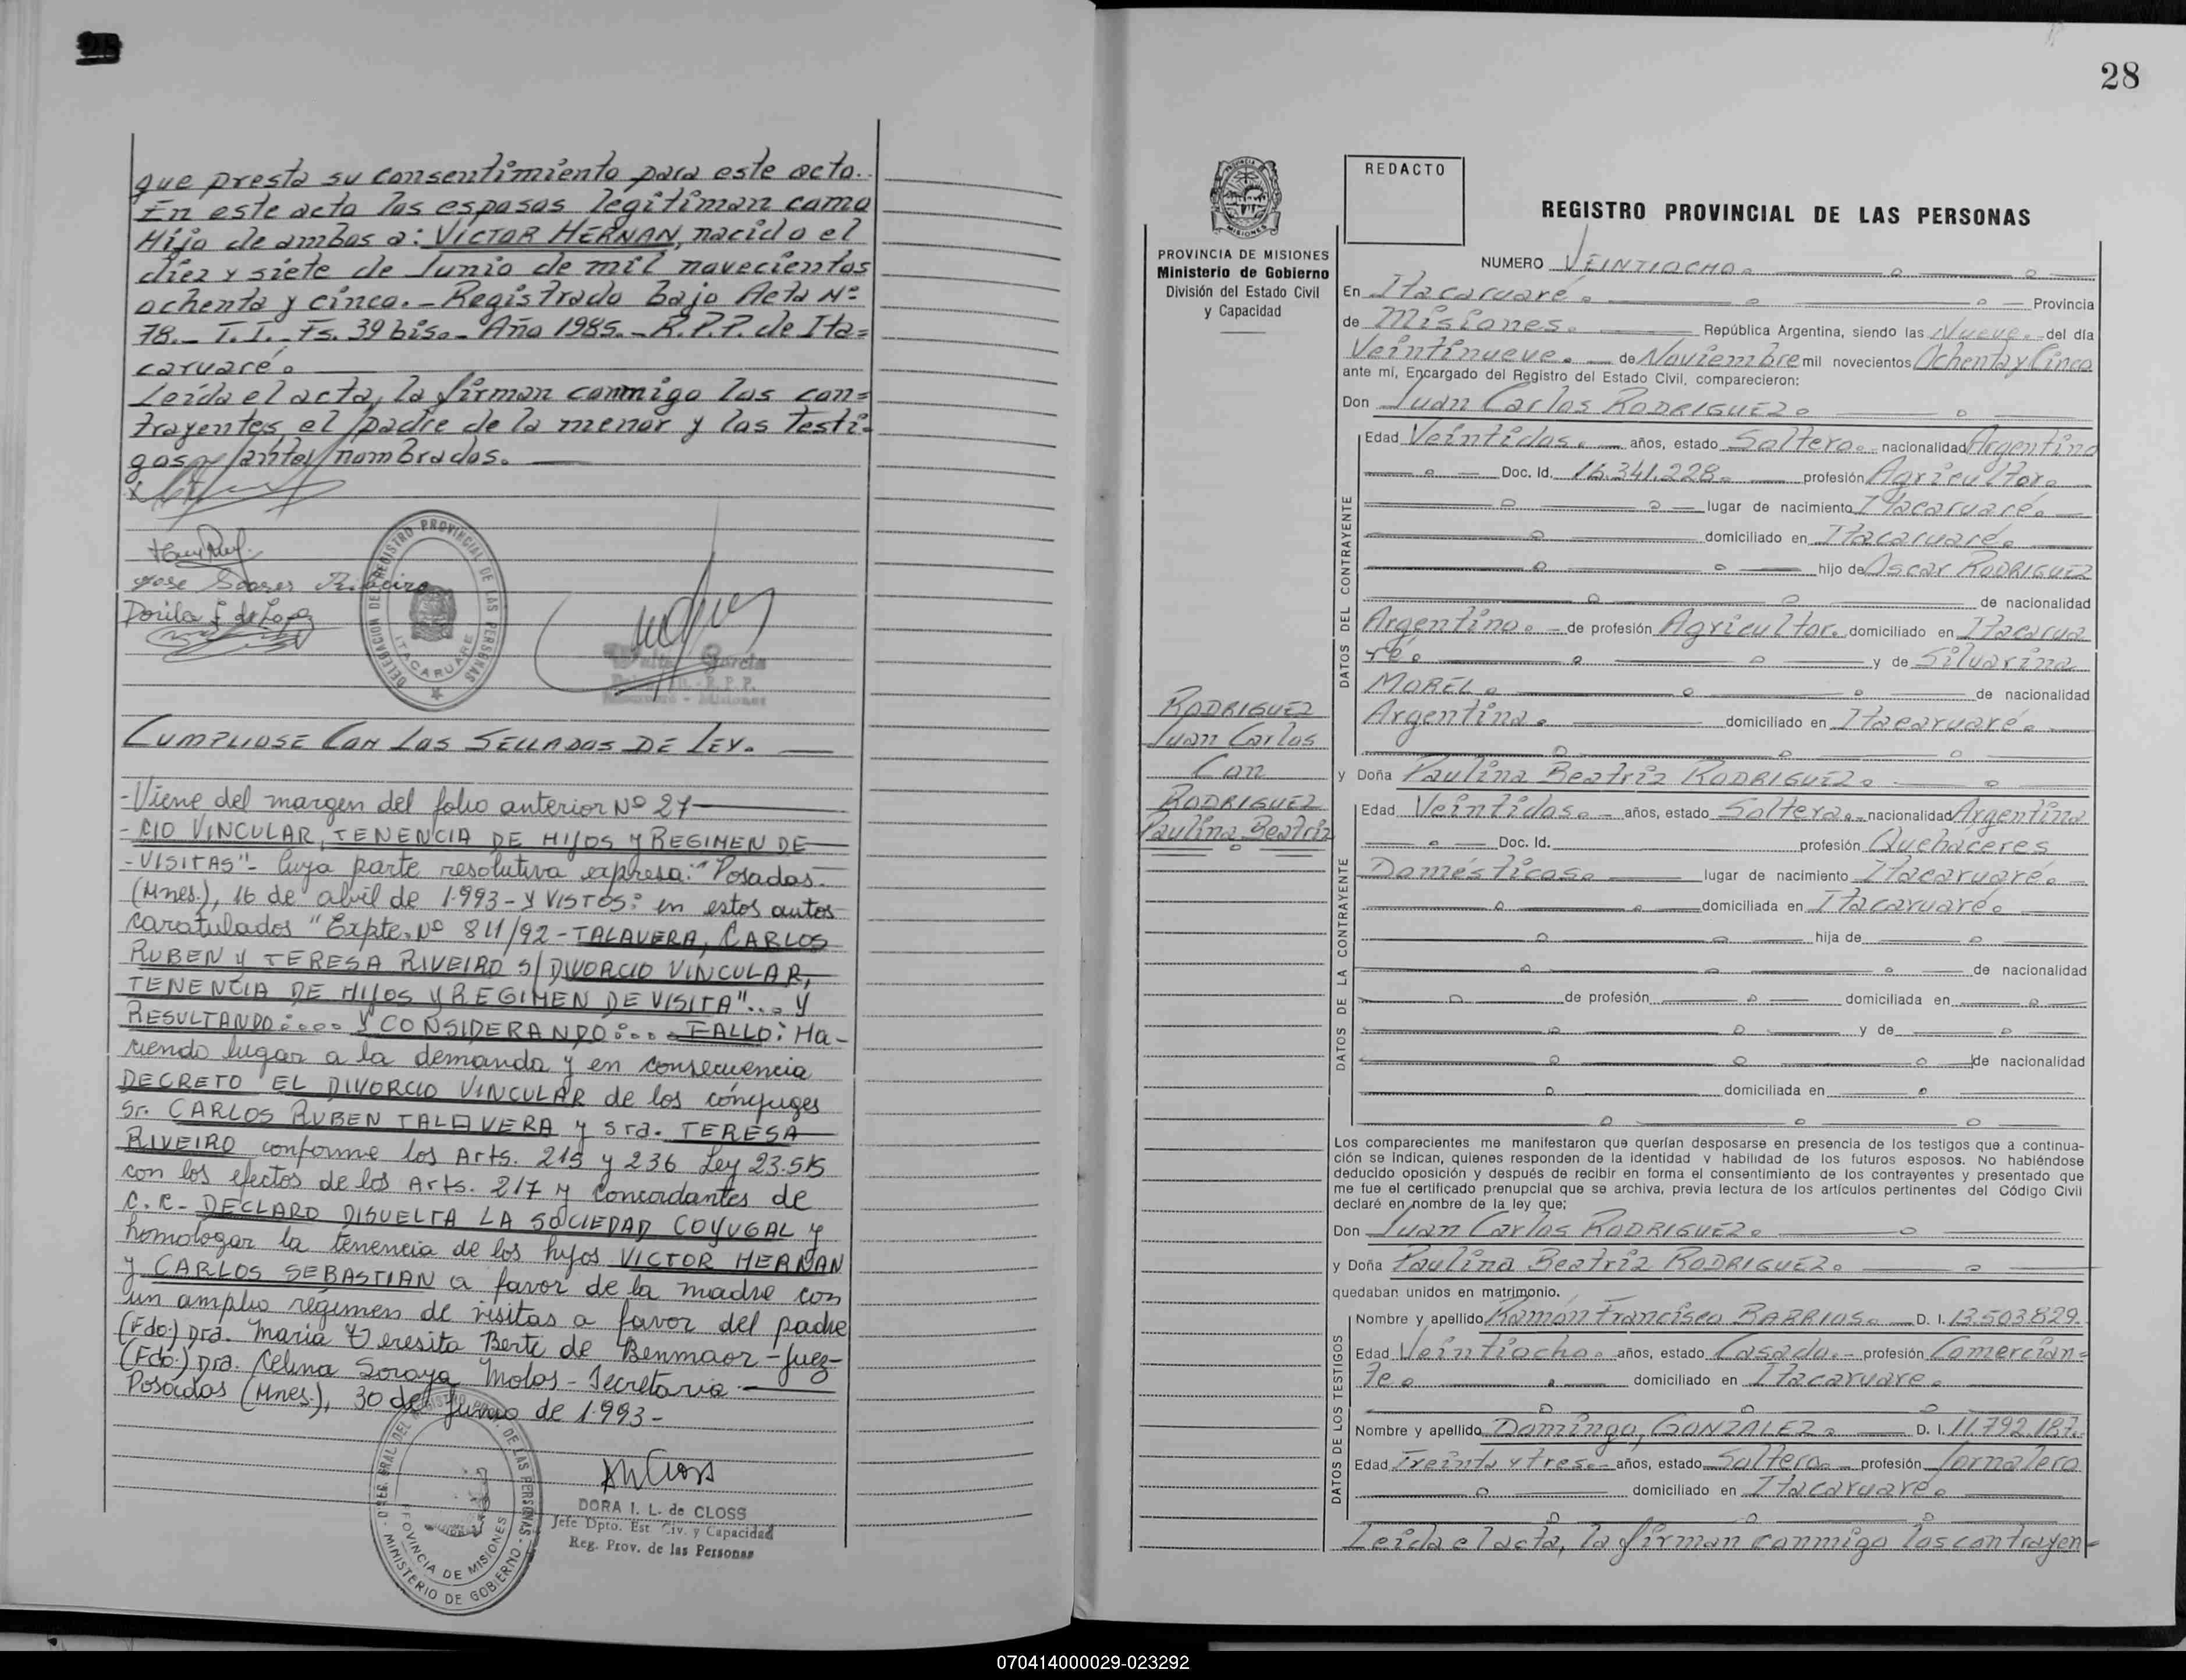 que presta su consentimiento para este acto.
En este acto los esposos legitiman como
Hijo de ambos a: VICTOR HERNAN, nacido el
diez y siete de Junio de mil novecientos
ochenta y cinco.- Registrado bajo Acta Nº
78.- T.I.- Fs. 39 bis.- Año 1985.- R.P.P. de Ita=
caruaré.
Leída el acta, la firman conmigo los con=
trayentes, el padre de la menor y los testi-
gos antes nombrados.
Jose Soares Ribeiro
Dorila F. de Lopez
DELEGACION DE REGISTRO PROVINCIAL DE LAS PERSONAS
ITACARUARE
Walter Garcia
R.P.P.
Itacaruaré - Misiones
CUMPLIOSE CON LOS SELLADOS DE LEY.
-Viene del margen del folio anterior Nº 27
-CIO VINCULAR, TENENCIA DE HIJOS Y REGIMEN DE
-VISITAS"- Cuya parte resolutiva expresa: "Posadas.
(Mnes.), 16 de abril de 1.993- Y VISTOS: en estos autos
caratulados "Expte. Nº 811/92 - TALAVERA, CARLOS
RUBEN Y TERESA RIVEIRO S/ DIVORCIO VINCULAR,
TENENCIA DE HIJOS Y REGIMEN DE VISITA"... Y
RESULTANDO:.... Y CONSIDERANDO:... FALLO: Ha-
ciendo lugar a la demanda y en consecuencia
DECRETO EL DIVORCIO VINCULAR de los cónyuges
Sr. CARLOS RUBEN TALAVERA y Sra. TERESA
RIVEIRO conforme los Arts. 215 y 236 Ley 23.515
con los efectos de los Arts. 217 y concordantes de
C.C.- DECLARO DISUELTA LA SOCIEDAD COYUGAL y
homologar la tenencia de los hijos VICTOR HERNAN
y CARLOS SEBASTIAN a favor de la madre con
un amplio régimen de visitas a favor del padre
(Fdo.) Dra. Maria Teresita Berte de Benmaor - Juez-
(Fdo.) Dra. Celina Soraya Molas - Secretaria.-
Posadas (Mnes.), 30 de Junio de 1.993-
PROVINCIA DE MISIONES
MINISTERIO DE GOBIERNO
DORA I. L. de CLOSS
Jefe Dpto. Est. Civ. y Capacidad
Reg. Prov. de las Personas
28
PROVINCIA DE MISIONES
Ministerio de Gobierno
División del Estado Civil
y Capacidad
RODRIGUEZ
Juan Carlos
Con
RODRIGUEZ
Paulina Beatriz
REDACTO
REGISTRO PROVINCIAL DE LAS PERSONAS
NUMERO VEINTIOCHO.
En Itacaruaré. Provincia
de Misiones. República Argentina, siendo las Nueve. del día
Veintinueve. de Noviembre mil novecientos Ochenta y Cinco
ante mí, Encargado del Registro del Estado Civil, comparecieron:
Don Juan Carlos RODRIGUEZ.
DATOS DEL CONTRAYENTE
Edad Veintidos. años, estado Soltero. nacionalidad Argentino
Doc. Id. 16.341.228. profesión Agricultor.
lugar de nacimiento Itacaruaré.
domiciliado en Itacaruaré.
hijo de Oscar RODRIGUEZ
de nacionalidad
Argentino. de profesión Agricultor. domiciliado en Itacarua
ré. y de Silvarina
MOREL. de nacionalidad
Argentina. domiciliado en Itacaruaré.
y Doña Paulina Beatriz RODRIGUEZ.
DATOS DE LA CONTRAYENTE
Edad Veintidos. años, estado Soltera. nacionalidad Argentina
Doc. Id. profesión Quehaceres
Domésticos. lugar de nacimiento Itacaruaré.
domiciliada en Itacaruaré.
hija de
de nacionalidad
de profesión domiciliada en
y de
de nacionalidad
domiciliada en
Los comparecientes me manifestaron que querían desposarse en presencia de los testigos que a continua-
ción se indican, quienes responden de la identidad y habilidad de los futuros esposos. No habiéndose
deducido oposición y después de recibir en forma el consentimiento de los contrayentes y presentado que
me fue el certificado prenupcial que se archiva, previa lectura de los artículos pertinentes del Código Civil
declaré en nombre de la ley que;
Don Juan Carlos RODRIGUEZ.
y Doña Paulina Beatriz RODRIGUEZ.
quedaban unidos en matrimonio.
DATOS DE LOS TESTIGOS
Nombre y apellido Ramón Francisco BARRIOS. D. I. 13.503.829.
Edad Veintiocho. años, estado Casado.- profesión Comercian=
te. domiciliado en Itacaruare.
Nombre y apellido Domingo, GONZALEZ. D. I. 11.792.187.
Edad Treinta y tres.- años, estado Soltero. profesión Jornalero
domiciliado en Itacaruaré.
Leída el acta, la firman conmigo los contrayen-
070414000029-023292